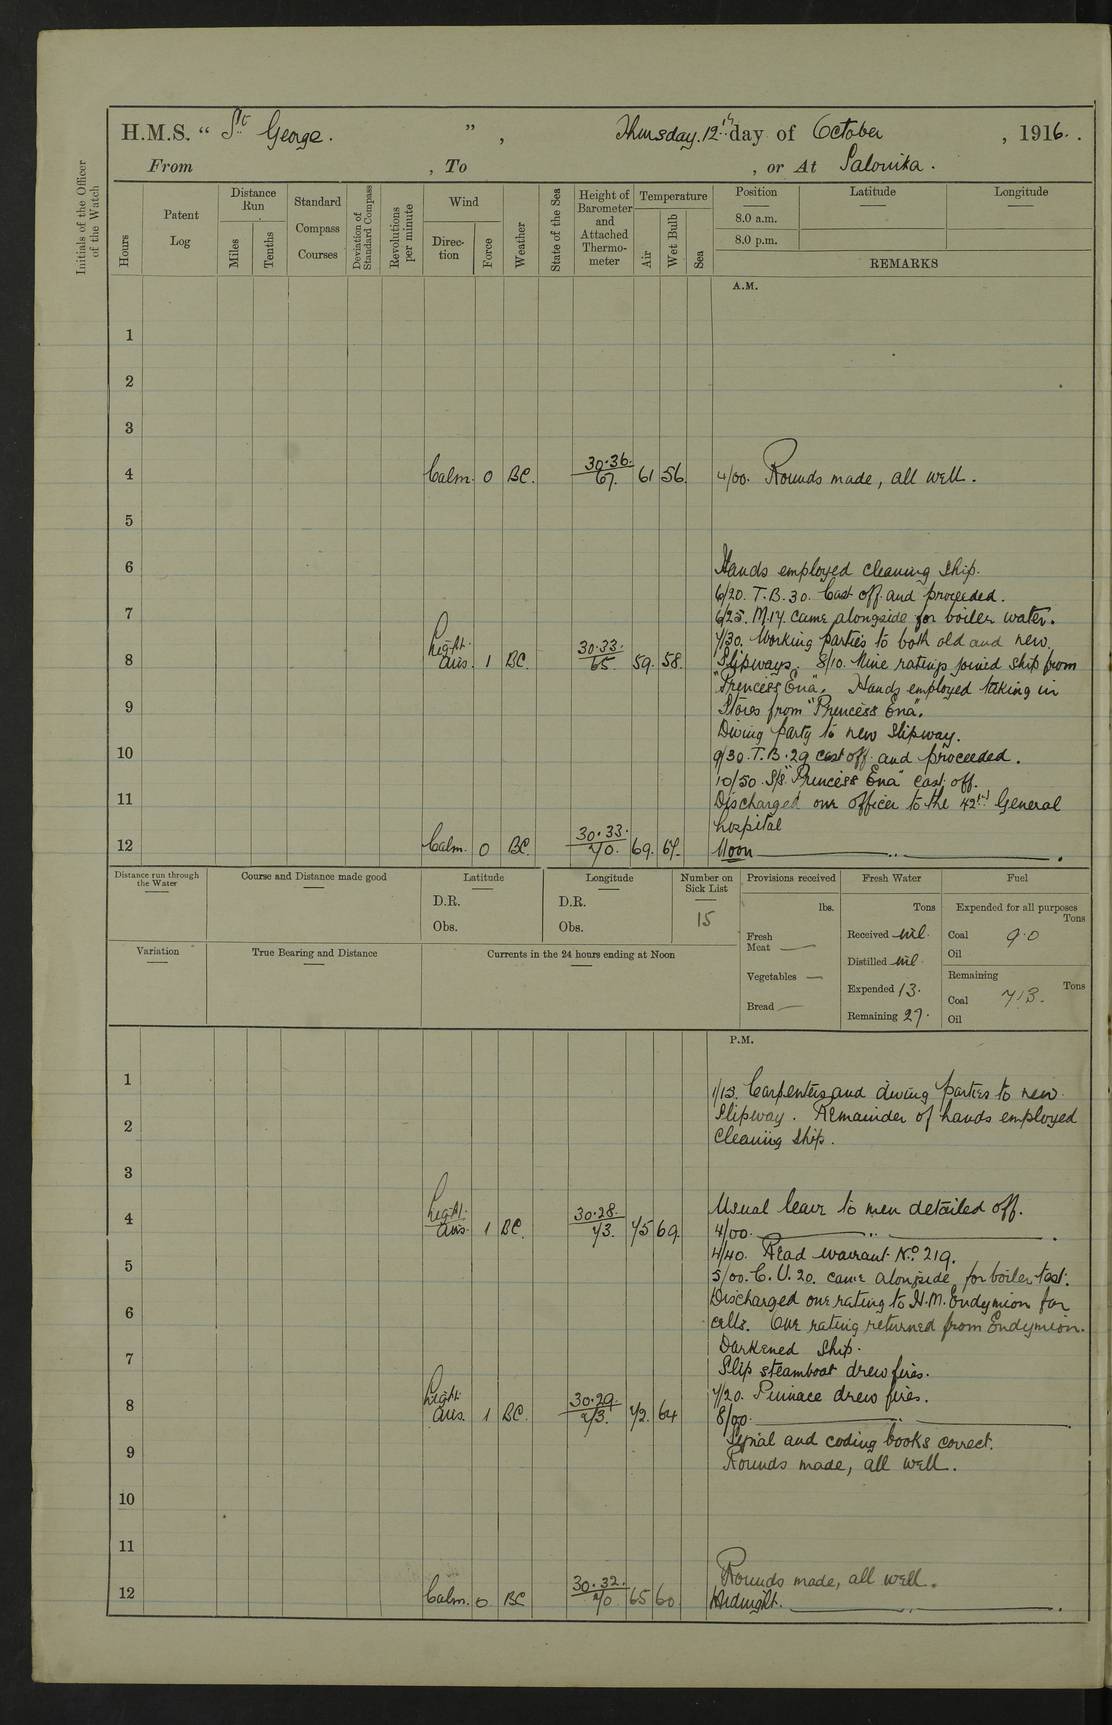 H.M.S. “ St George. ” , Thursday. 12th day of October , 1916.
From , To , or At Salonika.
Initials of the Officer of the Watch
Hours
Patent Log
Distance Run
Miles
Tenths
Standard Compass Courses
Deviation of Standard Compass
Revolutions per minute
Wind
Direction
Force
Weather
State of the Sea
Height of Barometer and Attached Thermometer
Temperature
Air
Wet Bulb
Sea
Position
8.0 a.m.
8.0 p.m.
Latitude
Longitude
REMARKS
A.M.
1
2
3
4 Calm. 0 BC. 30.36. 67. 61 56. 4/00. Rounds made, all well.
5
6 Hands employed cleaning Ship.
6/20. T.B.30. Cast off and proceeded.
7 6/25. M.14. came alongside for boiler water.
7/30. Working parties to both old and new
8 Light airs. 1 BC. 30.33. 65. 59. 58. Slipways. 8/10. Nine ratings joined ship from
"Princess Ena". Hands employed taking in
9 Stores from "Princess Ena".
Diving party to new Slipway.
10 9/30. T.B.29 cast off and proceeded.
10/50. S/S "Princess Ena" cast off.
11 Discharged one officer to the 42nd General
hospital
12 Calm. 0 BC. 30.33. 70. 69. 64. Noon
Distance run through the Water
Course and Distance made good
Latitude
D.R.
Obs.
Longitude
D.R.
Obs.
Number on Sick List
15
Provisions received
lbs.
Fresh Meat —
Vegetables —
Bread —
Fresh Water
Tons
Received nil.
Distilled nil.
Expended 13.
Remaining 27.
Fuel
Expended for all purposes
Tons
Coal 9.0
Oil
Remaining
Tons
Coal 713.
Oil
Variation
True Bearing and Distance
Currents in the 24 hours ending at Noon
P.M.
1 1/15. Carpenters and diving parties to new
2 Slipway. Remainder of hands employed
cleaning Ship.
3
Usual leave to men detailed off.
4 Light airs. 1 BC. 30.28. 73. 75 69. 4/00.
4/40. Read warrant No. 219.
5 5/00. C.U.20. came alongside for boiler test.
Discharged one rating to H.M. Endymion for
6 cells. One rating returned from Endymion.
Darkened Ship.
7 Slip steamboat drew fires.
7/20. Pinnace drew fires.
8 Light airs. 1 BC. 30.29. 73. 72. 64 8/00.
Signal and coding books correct.
9 Rounds made, all well.
10
11
Rounds made, all well.
12 Calm. 0 BC 30.32. 70 65 60 Midnight.